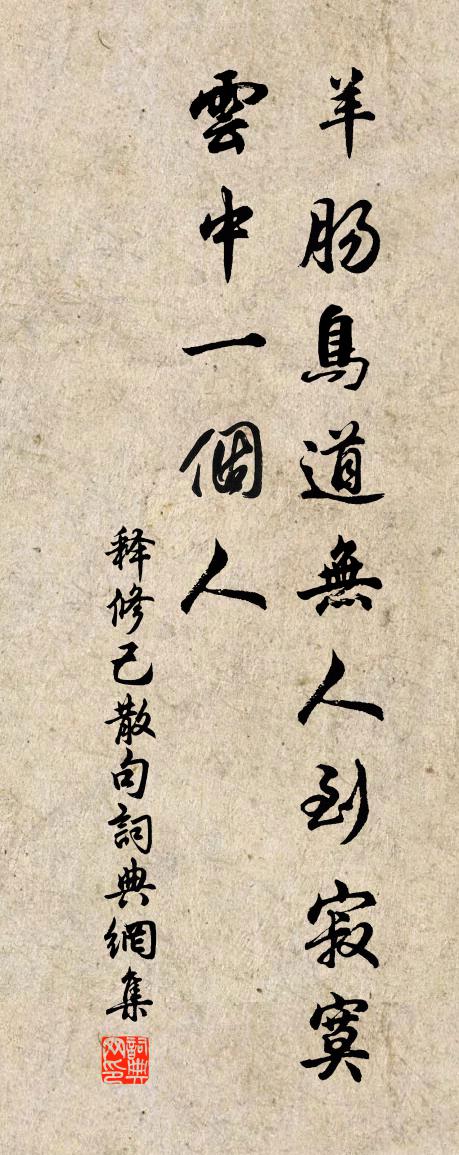 羊肠鳥道無人到寂寞
雲中一個人
释修己散句詞典網集
詞典网印